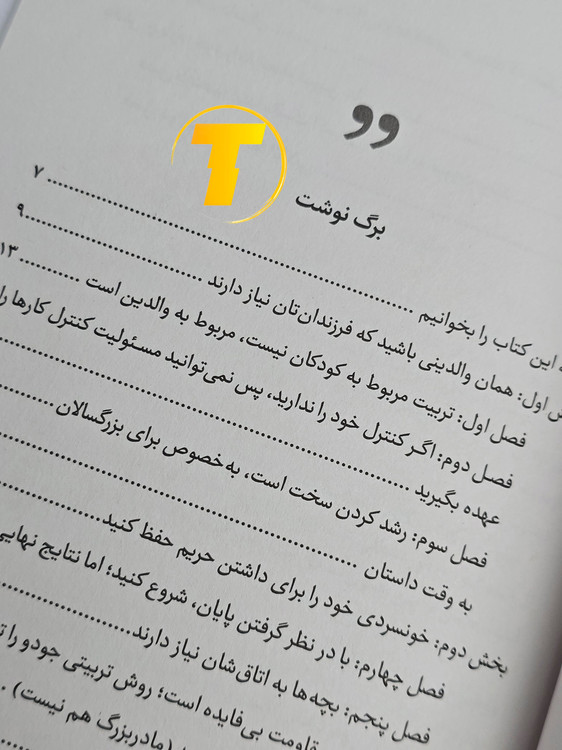 ”
T
برگ نوشت
این کتاب را بخوانیم ........ ۷
اول: همان والدینی باشید که فرزندان‌تان نیاز دارند ........ ۹
فصل اول: تربیت مربوط به کودکان نیست، مربوط به والدین است ........ ۱۳
فصل دوم: اگر کنترل خود را ندارید، پس نمی‌توانید مسئولیت کنترل کارها را
عهده بگیرید ........
فصل سوم: رشد کردن سخت است، به‌خصوص برای بزرگسالان ........
به وقت داستان ........
بخش دوم: خونسردی خود را برای داشتن حریم حفظ کنید ........
فصل چهارم: با در نظر گرفتن پایان، شروع کنید؛ اما نتایج نهایی
فصل پنجم: بچه‌ها به اتاق‌شان نیاز دارند ........
مقاومت بی‌فایده است؛ روش تربیتی جودو را
(مادربزرگ هم نیست) .